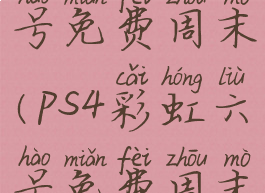 hào miǎn fèi zhōu mò
号免费周末
cǎi hóng liù
(PS4彩虹六
hào miǎn fèi zhōu mò
号免费周末